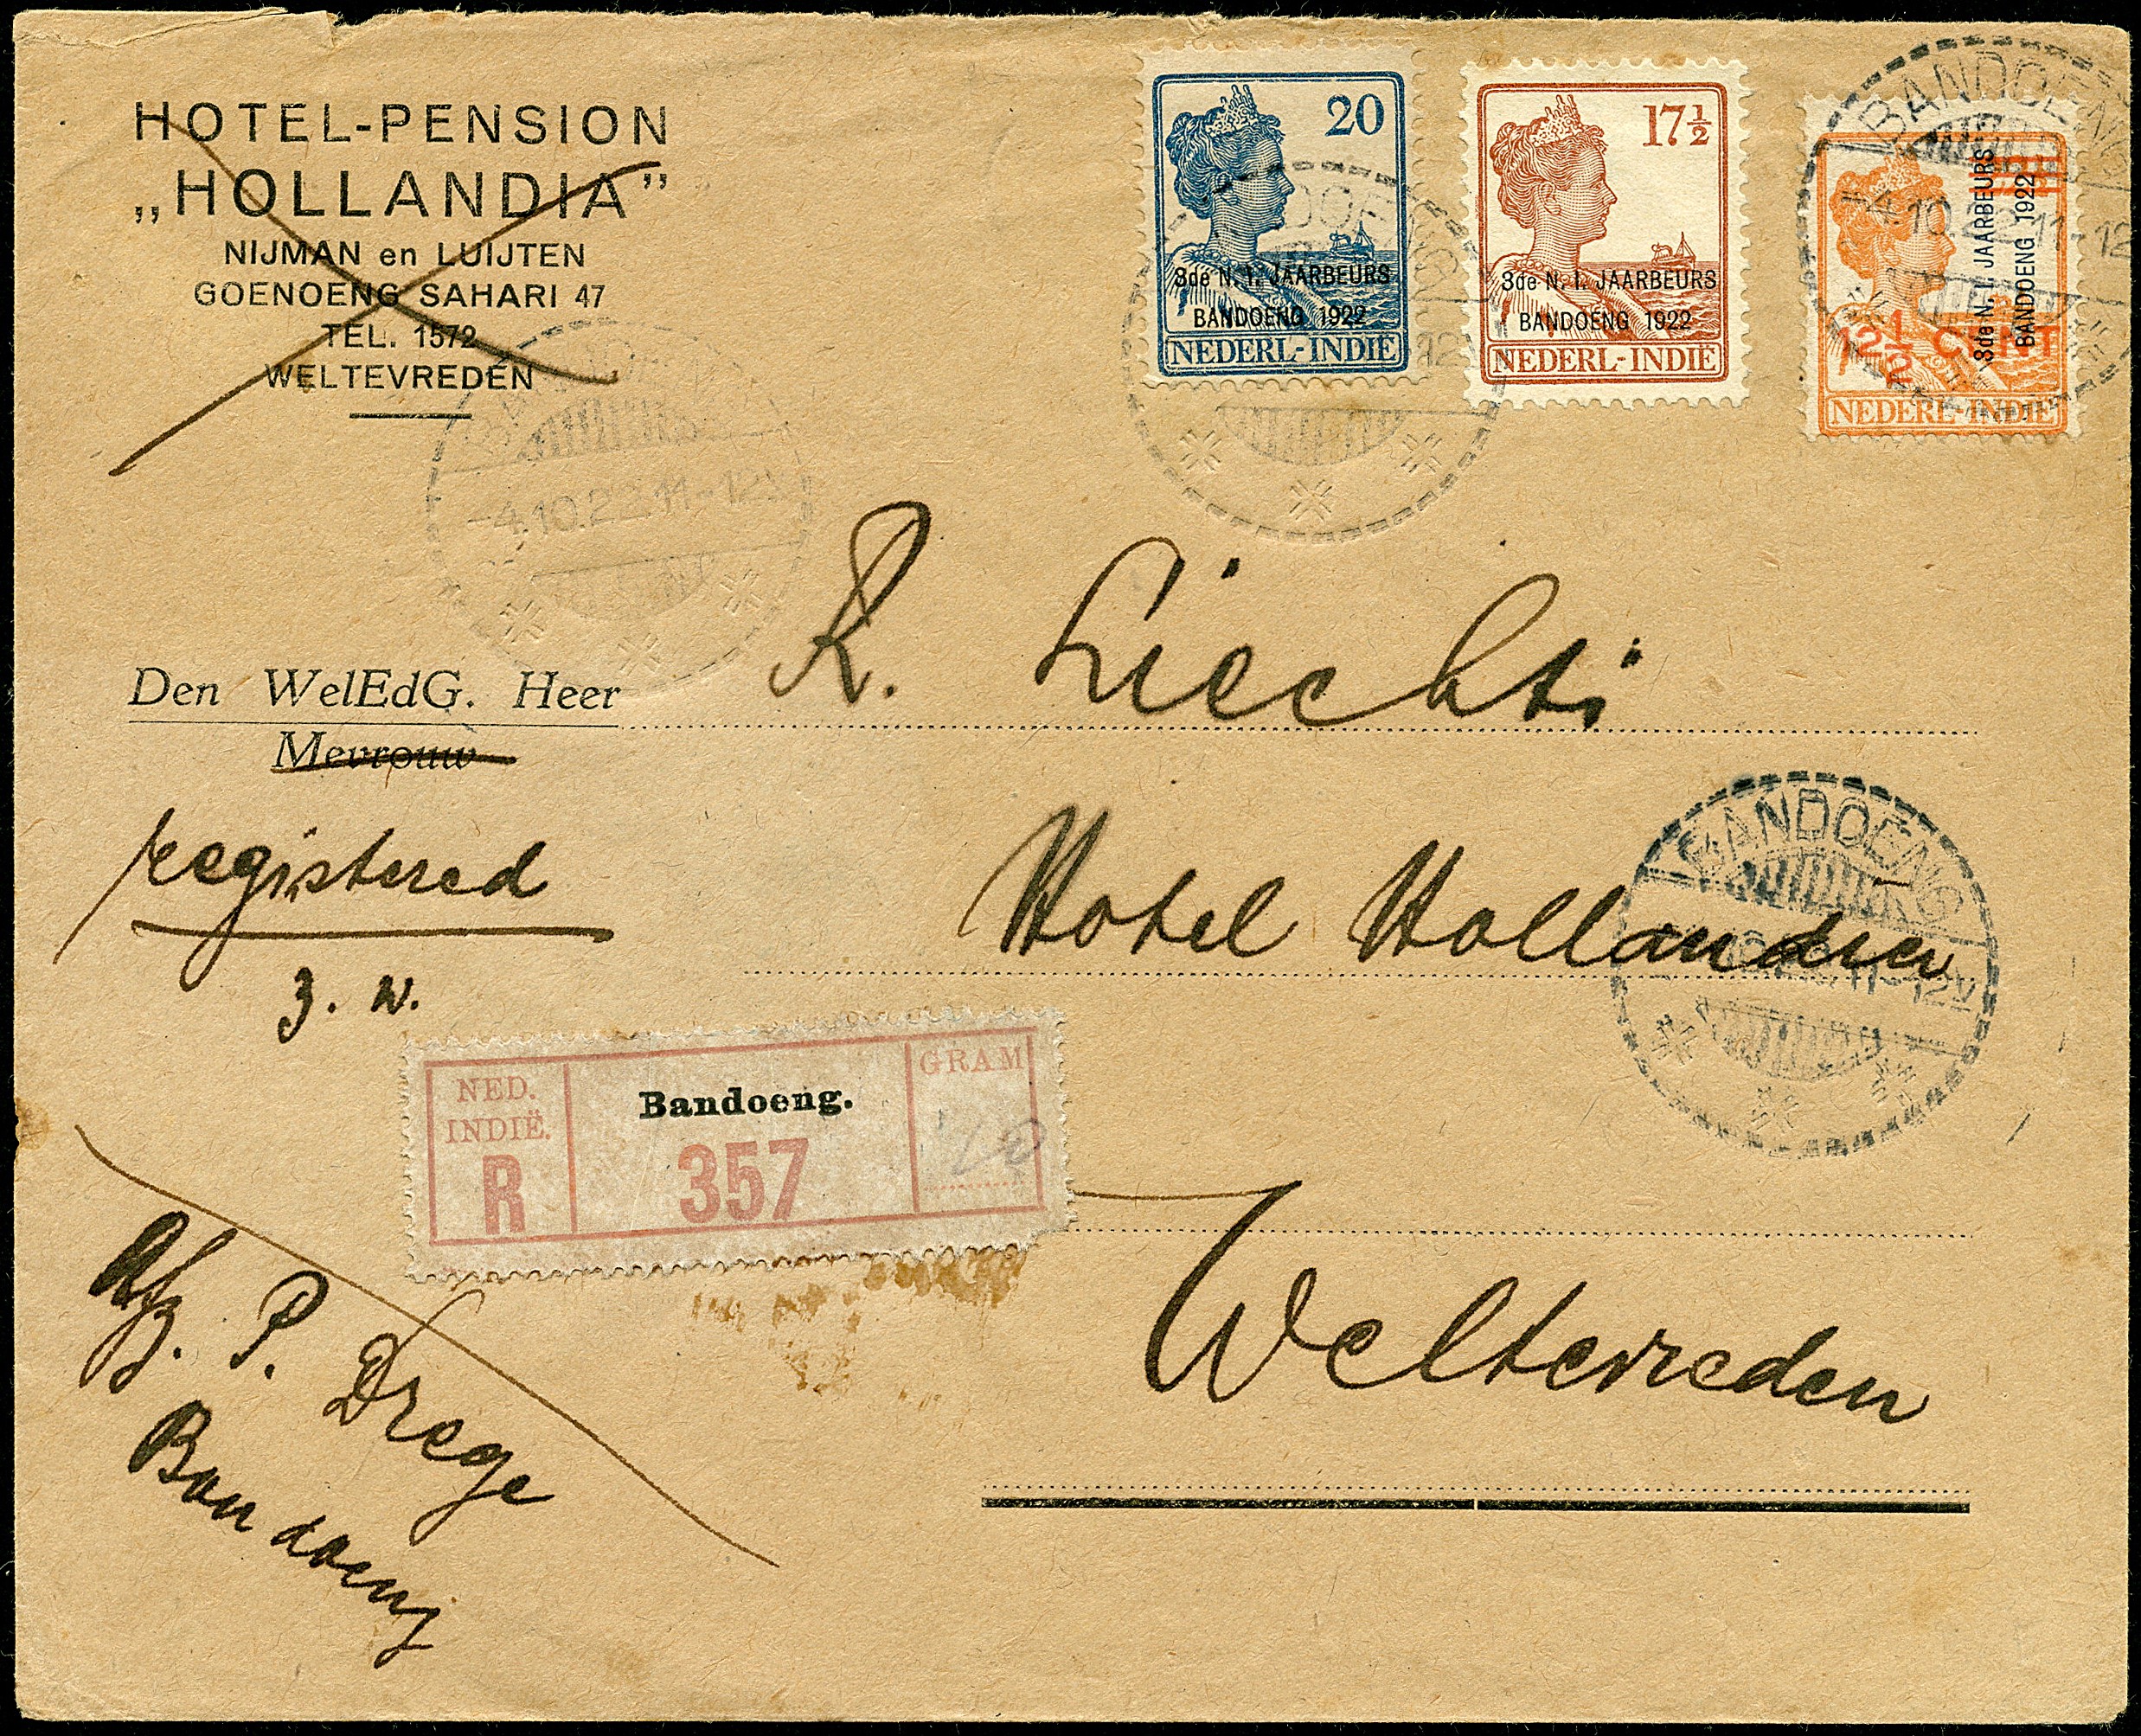 HOTEL-PENSION
„HOLLANDIA”
NIJMAN en LUIJTEN
GOENOENG SAHARI 47
TEL. 1572
WELTEVREDEN
20
3de N. I. JAARBEURS
BANDOENG 1922
NEDERL-INDIË
17½
3de N. I. JAARBEURS
BANDOENG 1922
NEDERL-INDIË
3de N. I. JAARBEURS
BANDOENG 1922
12½ CENT
NEDERL-INDIË
BANDOENG
4.10.22.11-12
-4.10.22.11-12V
Den WelEdG. Heer R. Liechti
Mevrouw
registered
Hotel Hollandia
BANDOENG
11-12V
z. w.
NED.
INDIË.
R
Bandoeng.
357
GRAM
Weltevreden
Afz. P. Drege
Bandoeng